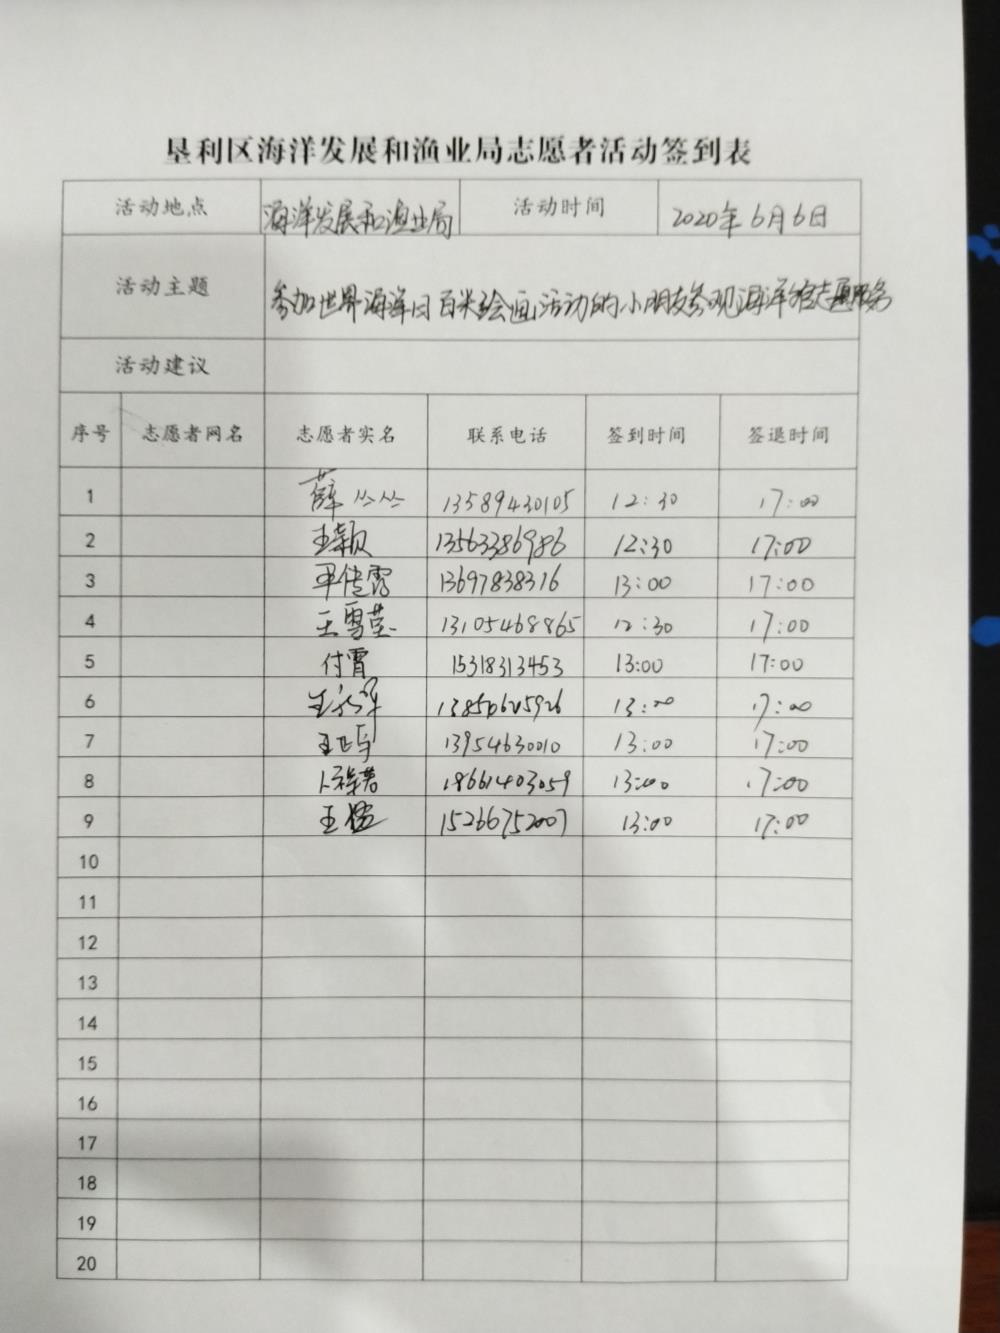 垦利区海洋发展和渔业局志愿者活动签到表
活动地点 海洋发展和渔业局 活动时间 2020年6月6日
活动主题 参加世界海洋日百米绘画活动的小朋友参观海洋馆志愿服务
活动建议
序号 志愿者网名 志愿者实名 联系电话 签到时间 签退时间
1 薛丛丛 13589430105 12:30 17:00
2 王颖 13563386986 12:30 17:00
3 13697838316 13:00 17:00
4 王雪莹 13105468865 12:30 17:00
5 付霄 15318313453 13:00 17:00
6 13:00 17:00
7 13954630010 13:00 17:00
8 18661403059 13:00 17:00
9 王 15266752007 13:00 17:00
10
11
12
13
14
15
16
17
18
19
20